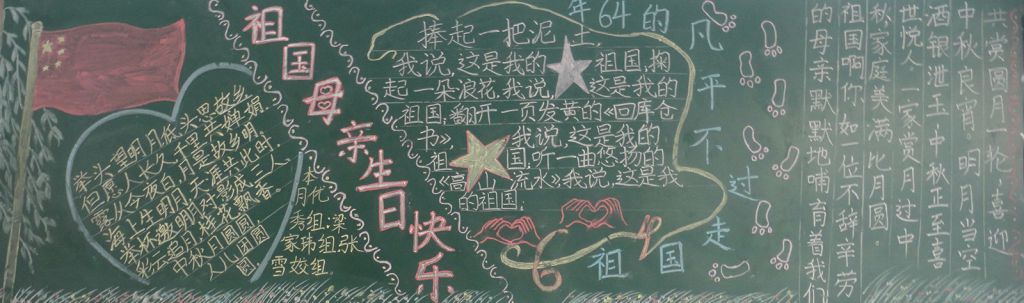 举头望明月低头思故乡
但愿人长久千里共婵娟
露从今夜白月是故乡明
海上生明月天涯共此时
举杯邀明月对影成三人
彩云追月桂花飘香
祖国母亲生日快乐
秀组:梁
家玮组张
雪姣组.
捧起一把泥土,
我说,这是我的祖国,掬
起一朵浪花,我说,这是我的
祖国,翻开一页发黄的《回库仓
书》我说,这是我的
祖国,听一曲悠扬的
《高山流水》我说,这是我
的祖国.
64
祖国走过不平凡的64年
共赏圆月一轮,喜迎
中秋良宵。明月当空
酒银泄玉中秋正至喜
世悦人一家赏月过中
秋家庭美满比月圆
祖国啊你如一位不辞辛劳
的母亲默默地哺育着我们